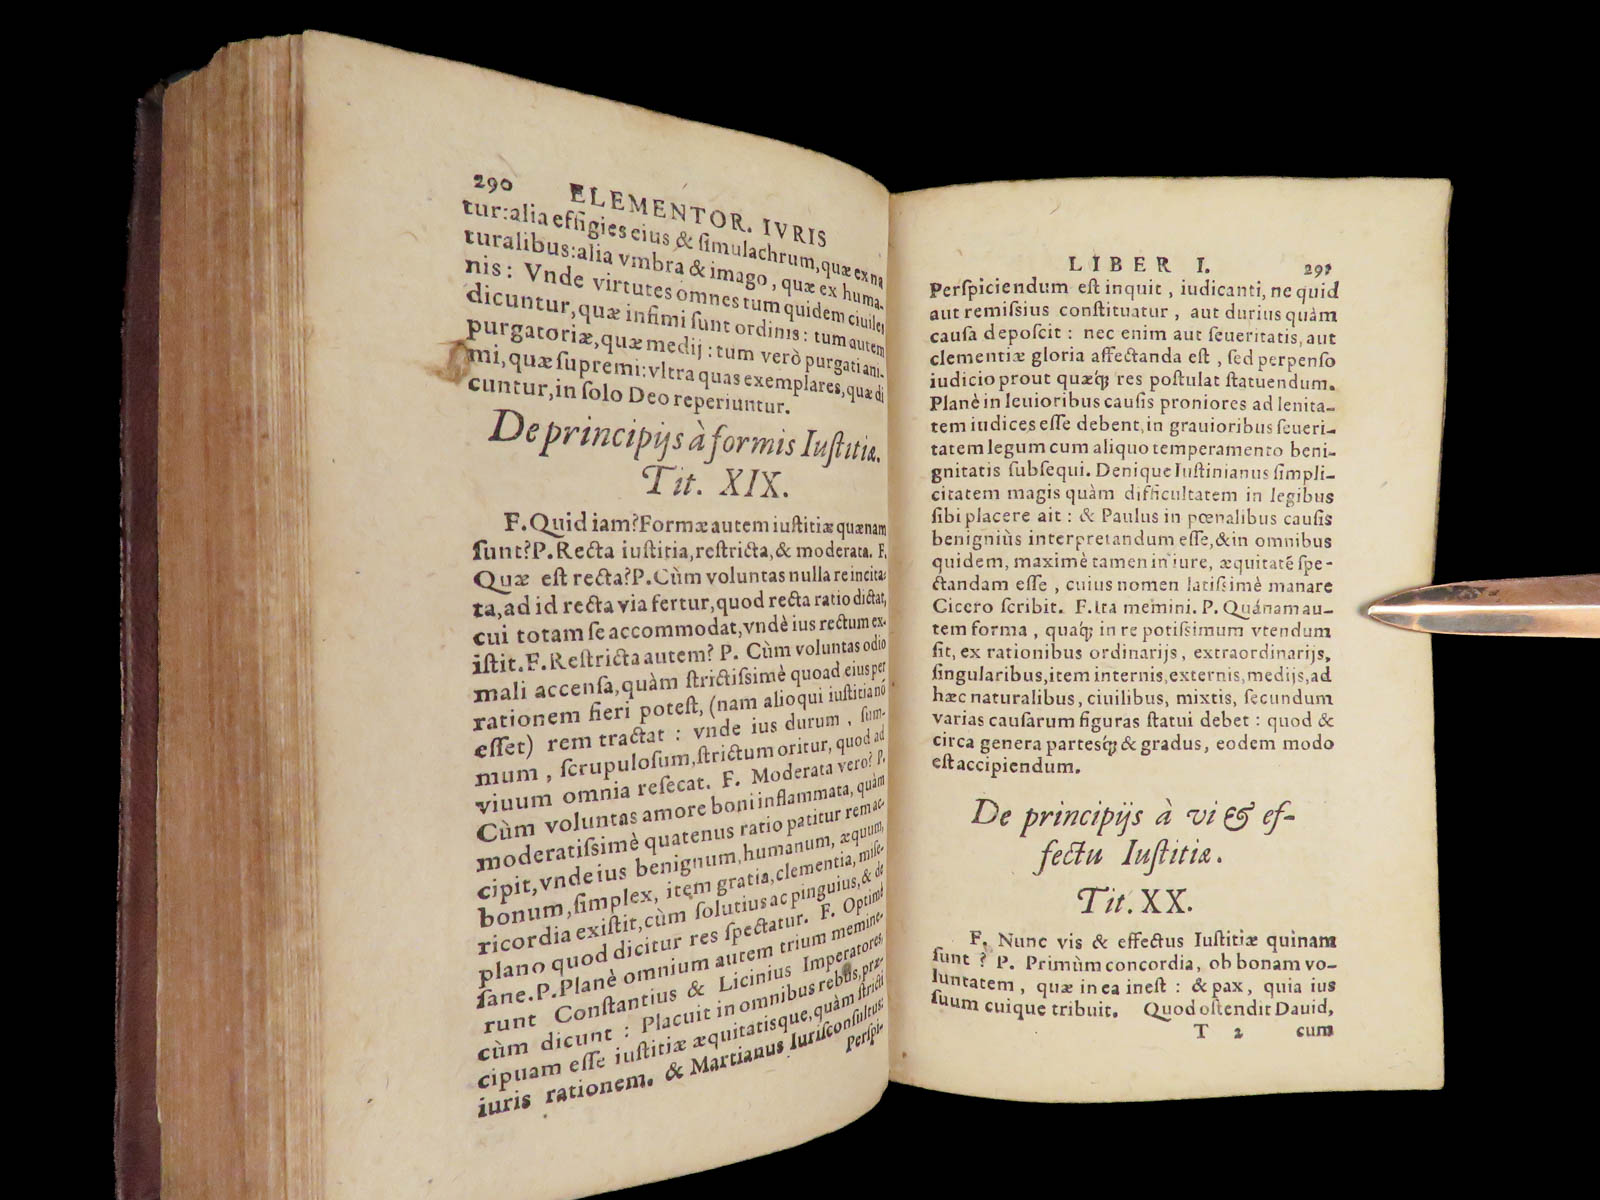 290 ELEMENTOR. IVRIS
tur:alia effigies eius & ſimulachrum, quæ ex na
turalibus:alia vmbra & imago, quæ ex huma-
nis: Vnde virtutes omnes tum quidem ciuiles
dicuntur, quæ infimi ſunt ordinis: tum autem
purgatoriæ, quæ medij: tum verò purgati ani-
mi, quæ ſupremi: vltra quas exemplares, quæ di
cuntur, in ſolo Deo reperiuntur.
De principijs à formis Iuſtitiæ.
Tit. XIX.
F. Quid iam? Formæ autem iuſtitiæ quænam
ſunt? P. Recta iuſtitia, reſtricta, & moderata. F.
Quæ eſt recta? P. Cùm voluntas nulla re incita-
ta, ad id recta via fertur, quod recta ratio dictat,
cui totam ſe accommodat, vndè ius rectum ex-
iſtit. F. Reſtricta autem? P. Cùm voluntas odio
mali accenſa, quàm ſtrictiſſimè quoad eius per
rationem fieri poteſt, (nam alioqui iuſtitia nō
eſſet) rem tractat: vnde ius durum, ſum-
mum, ſcrupuloſum, ſtrictum oritur, quod ad
viuum omnia reſecat. F. Moderata vero? P.
Cùm voluntas amore boni inflammata, quàm
moderatiſſimè quatenus ratio patitur rem ac-
cipit, vnde ius benignum, humanum, æquum,
bonum, ſimplex, item gratia, clementia, miſe-
ricordia exiſtit, cùm ſolutius ac pinguius, & de
plano quod dicitur res ſpectatur. F. Optimè
ſane. P. Planè omnium autem trium memine-
runt Conſtantius & Licinius Imperatores,
cùm dicunt: Placuit in omnibus rebus, præ-
cipuam eſſe iuſtitiæ æquitatisque, quàm ſtricti
iuris rationem. & Martianus Iuriſconſultus:
Perſpi-
LIBER I. 291
Perſpiciendum eſt inquit, iudicanti, ne quid
aut remiſſius conſtituatur, aut durius quàm
cauſa depoſcit: nec enim aut ſeueritatis, aut
clementiæ gloria affectanda eſt, ſed perpenſo
iudicio prout quæq́; res poſtulat ſtatuendum.
Planè in leuioribus cauſis proniores ad lenita-
tem iudices eſſe debent, in grauioribus ſeueri-
tatem legum cum aliquo temperamento beni-
gnitatis ſubſequi. Denique Iuſtinianus ſimpli-
citatem magis quàm difficultatem in legibus
ſibi placere ait: & Paulus in pœnalibus cauſis
benigniùs interpretandum eſſe, & in omnibus
quidem, maximè tamen in iure, æquitatē ſpe-
ctandam eſſe, cuius nomen latiſsimè manare
Cicero ſcribit. F. Ita memini. P. Quánam au-
tem forma, quaq́; in re potiſsimum vtendum
ſit, ex rationibus ordinarijs, extraordinarijs,
ſingularibus, item internis, externis, medijs, ad
hæc naturalibus, ciuilibus, mixtis, ſecundum
varias cauſarum figuras ſtatui debet: quod &
circa genera partesq́; & gradus, eodem modo
eſt accipiendum.
De principijs à vi & ef-
fectu Iuſtitiæ.
Tit. XX.
F. Nunc vis & effectus Iuſtitiæ quinam
ſunt? P. Primùm concordia, ob bonam vo-
luntatem, quæ in ea ineſt: & pax, quia ius
ſuum cuique tribuit. Quod oſtendit Dauid,
T 2 cum